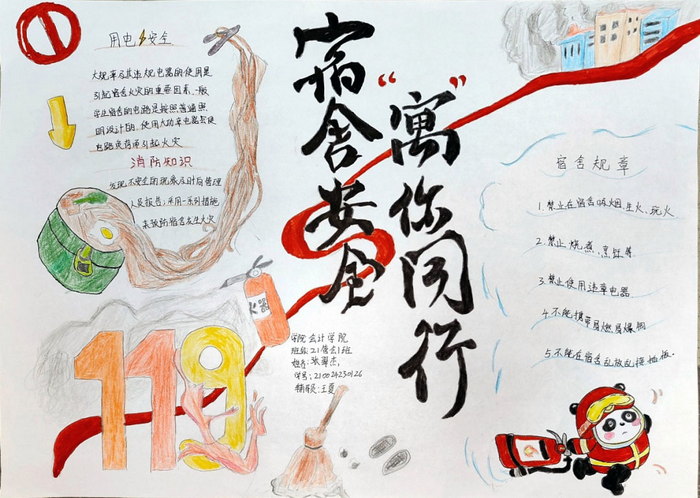 用电安全
大规率及其违规电器的使用是
引起宿舍火灾的重要因素,一般
学生宿舍的电路是按照普通照
明设计的,使用大功率电器会使
电路负荷而引起火灾
消防知识
发现不安全的现象及时向管理
人员报告,采用一系列措施
来预防宿舍发生火灾
宿舍安全
“寓”你同行
宿舍规章
1.禁止在宿舍吸烟生火、玩火
2.禁止烧煮、烹饪等
3.禁止使用违章电器
4.不能携带易燃易爆物
5.不能在宿舍乱放乱接地板.
火器
119
学院会计学院
班级:21会1班
学号:210024230126
辅导员:王夏